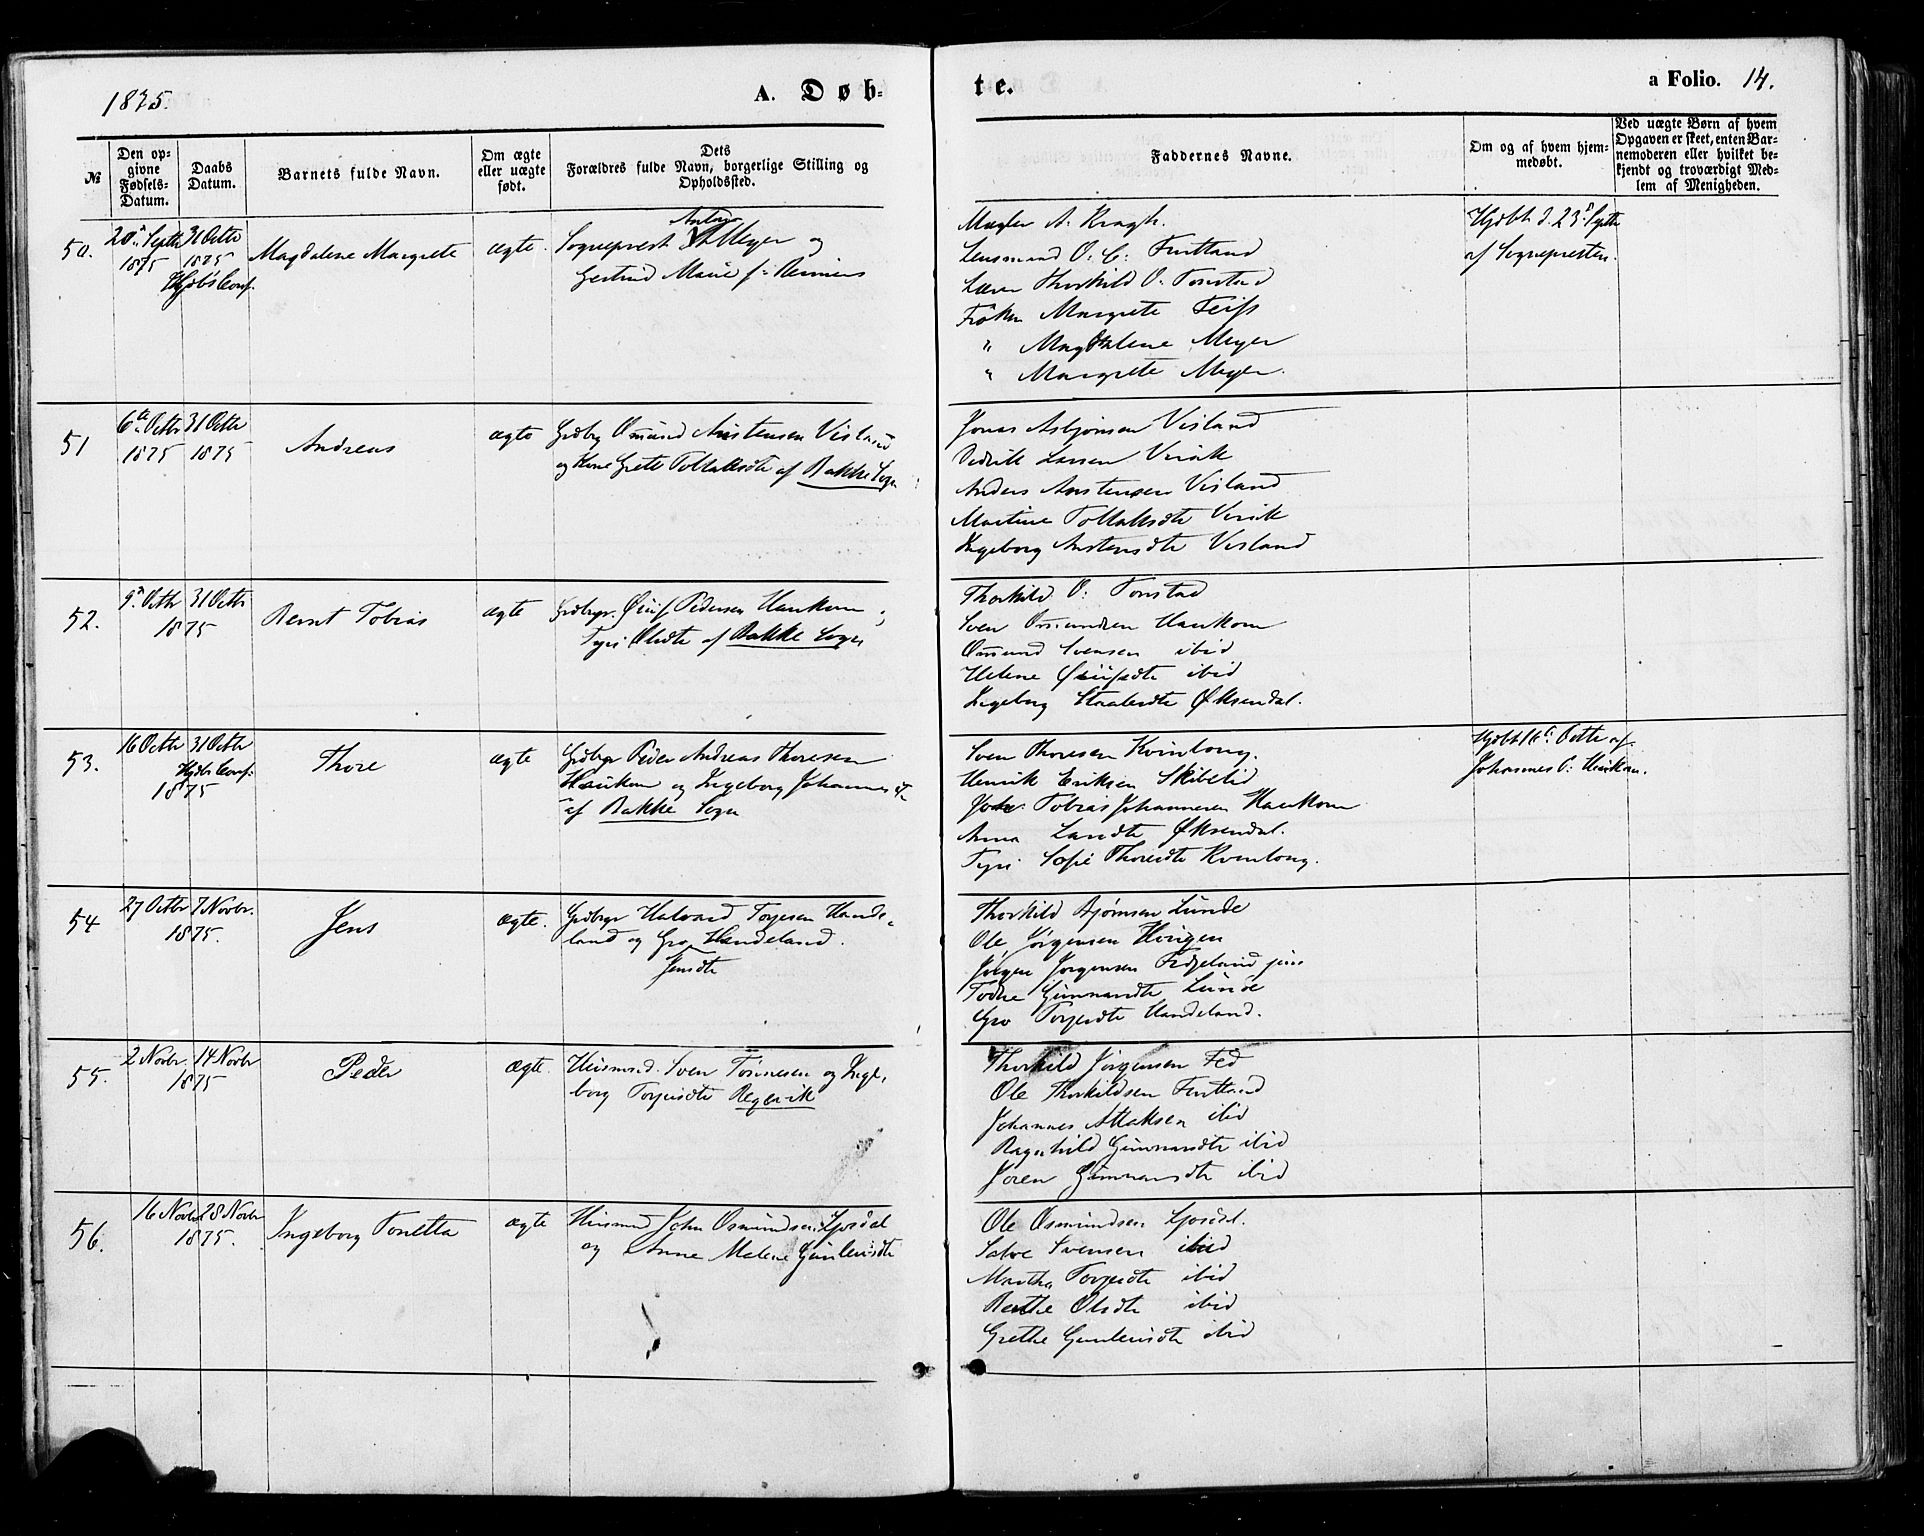 1875.
A. Døb-
te.
a Folio. 14.
№
Den op-
givne
Fødsels-
Datum.
Daabs
Datum.
Barnets fulde Navn.
Om ægte
eller uægte
født.
Dets
Forældres fulde Navn, borgerlige Stilling og
Opholdssted.
Faddernes Navne.
Om og af hvem hjem-
medøbt.
Ved uægte Børn af hvem
Opgaven er skeet, enten Bar-
nemoderen eller hvilket be-
kjendt og troværdigt Med-
lem af Menigheden.
50.
20 Septb
1875
31 Octbr
1875
Hjdbs Conf.
Magdalene Margrete
ægte
Sogneprest Meyer og
Gertrud Marie f:
A. Kragh.
Lensmand O. C. Fintland
Lærer Thorkild O. Tonstad
Frøken Margrete
" Magdalene Meyer
" Margrete Meyer.
Hjdbt d. 23 Septbr
af Sognepresten.
51
6te Octbr
1875
31 Octbr
1875
Andreas
ægte
Grdbrg Omund Austensen Visland
og Kone Grete Tollaksdtr af Bakke Sogn
Jonas Asbjørnsen Visland
Didrik Larsen Virik
Anders Austensen Visland
Martine Tollaksdtr Virik
Ingeborg Austensdtr Visland
52.
9 Octbr
31 Octbr
1875
Bernt Tobias
ægte
Grdbrgr. Pedersen Haukom
Tyri Olsdtr af Bakke Sogn
Thorkild O: Tonstad
Sven Omundsen Haukom
Omund Svensen ibid
Helene ibid
Ingeborg Øksendal.
53.
16 Octbr
31 Octbr
Hjdbs Conf:
1875
Thore
ægte
Grdbrgr Peder Andreas Thoresen
Haukom og Ingeborg Johannesdtr
af Bakke Sogn
Sven Thoresen Kvinlong.
Henrik Eriksen Skibelid
Tobias Johannesen Haukom
Anna Øksendal.
Tyri Sofie Thoresdtr Kvinlong.
Hjdbt Octbr af
Johannes Haukom.
54
27 Octbr
7 Novbr.
1875.
Jens
ægte.
Grdbrgr Halvard Torjesen Hande-
land og Gro Handeland.
Jensdtr
Thorkild Bjørnsen Lunde
Ole Jørgensen
Jørgen Jørgensen Fidjeland jun
Todne Gunnarsdtr Lunde
Gro Torjesdtr Handeland.
55.
2 Novbr.
14 Novbr
1875
Peder
ægte.
Huusmd. Sven Tønnesen og Inge-
borg Torjusdtr Regevik
Thorkild Jørgensen Fed
Ole Thorkildsen Fintland
Johannes Atlaksen ibid
Ragnhild Gunnarsdtr ibid
Joren Gunnarsdtr ibid
56.
16 Novbr
28 Novbr
1875.
Ingeborg Tonetta
ægte
Huusmd John Osmundsen Ljosdal
og Anne Malene Gunleivsdtr
Ole Osmundsen Ljosdal.
Salve Svensen ibid
Martha Torjesdtr ibid
Berthe Olsdtr ibid
Grethe Gunleivsdtr ibid